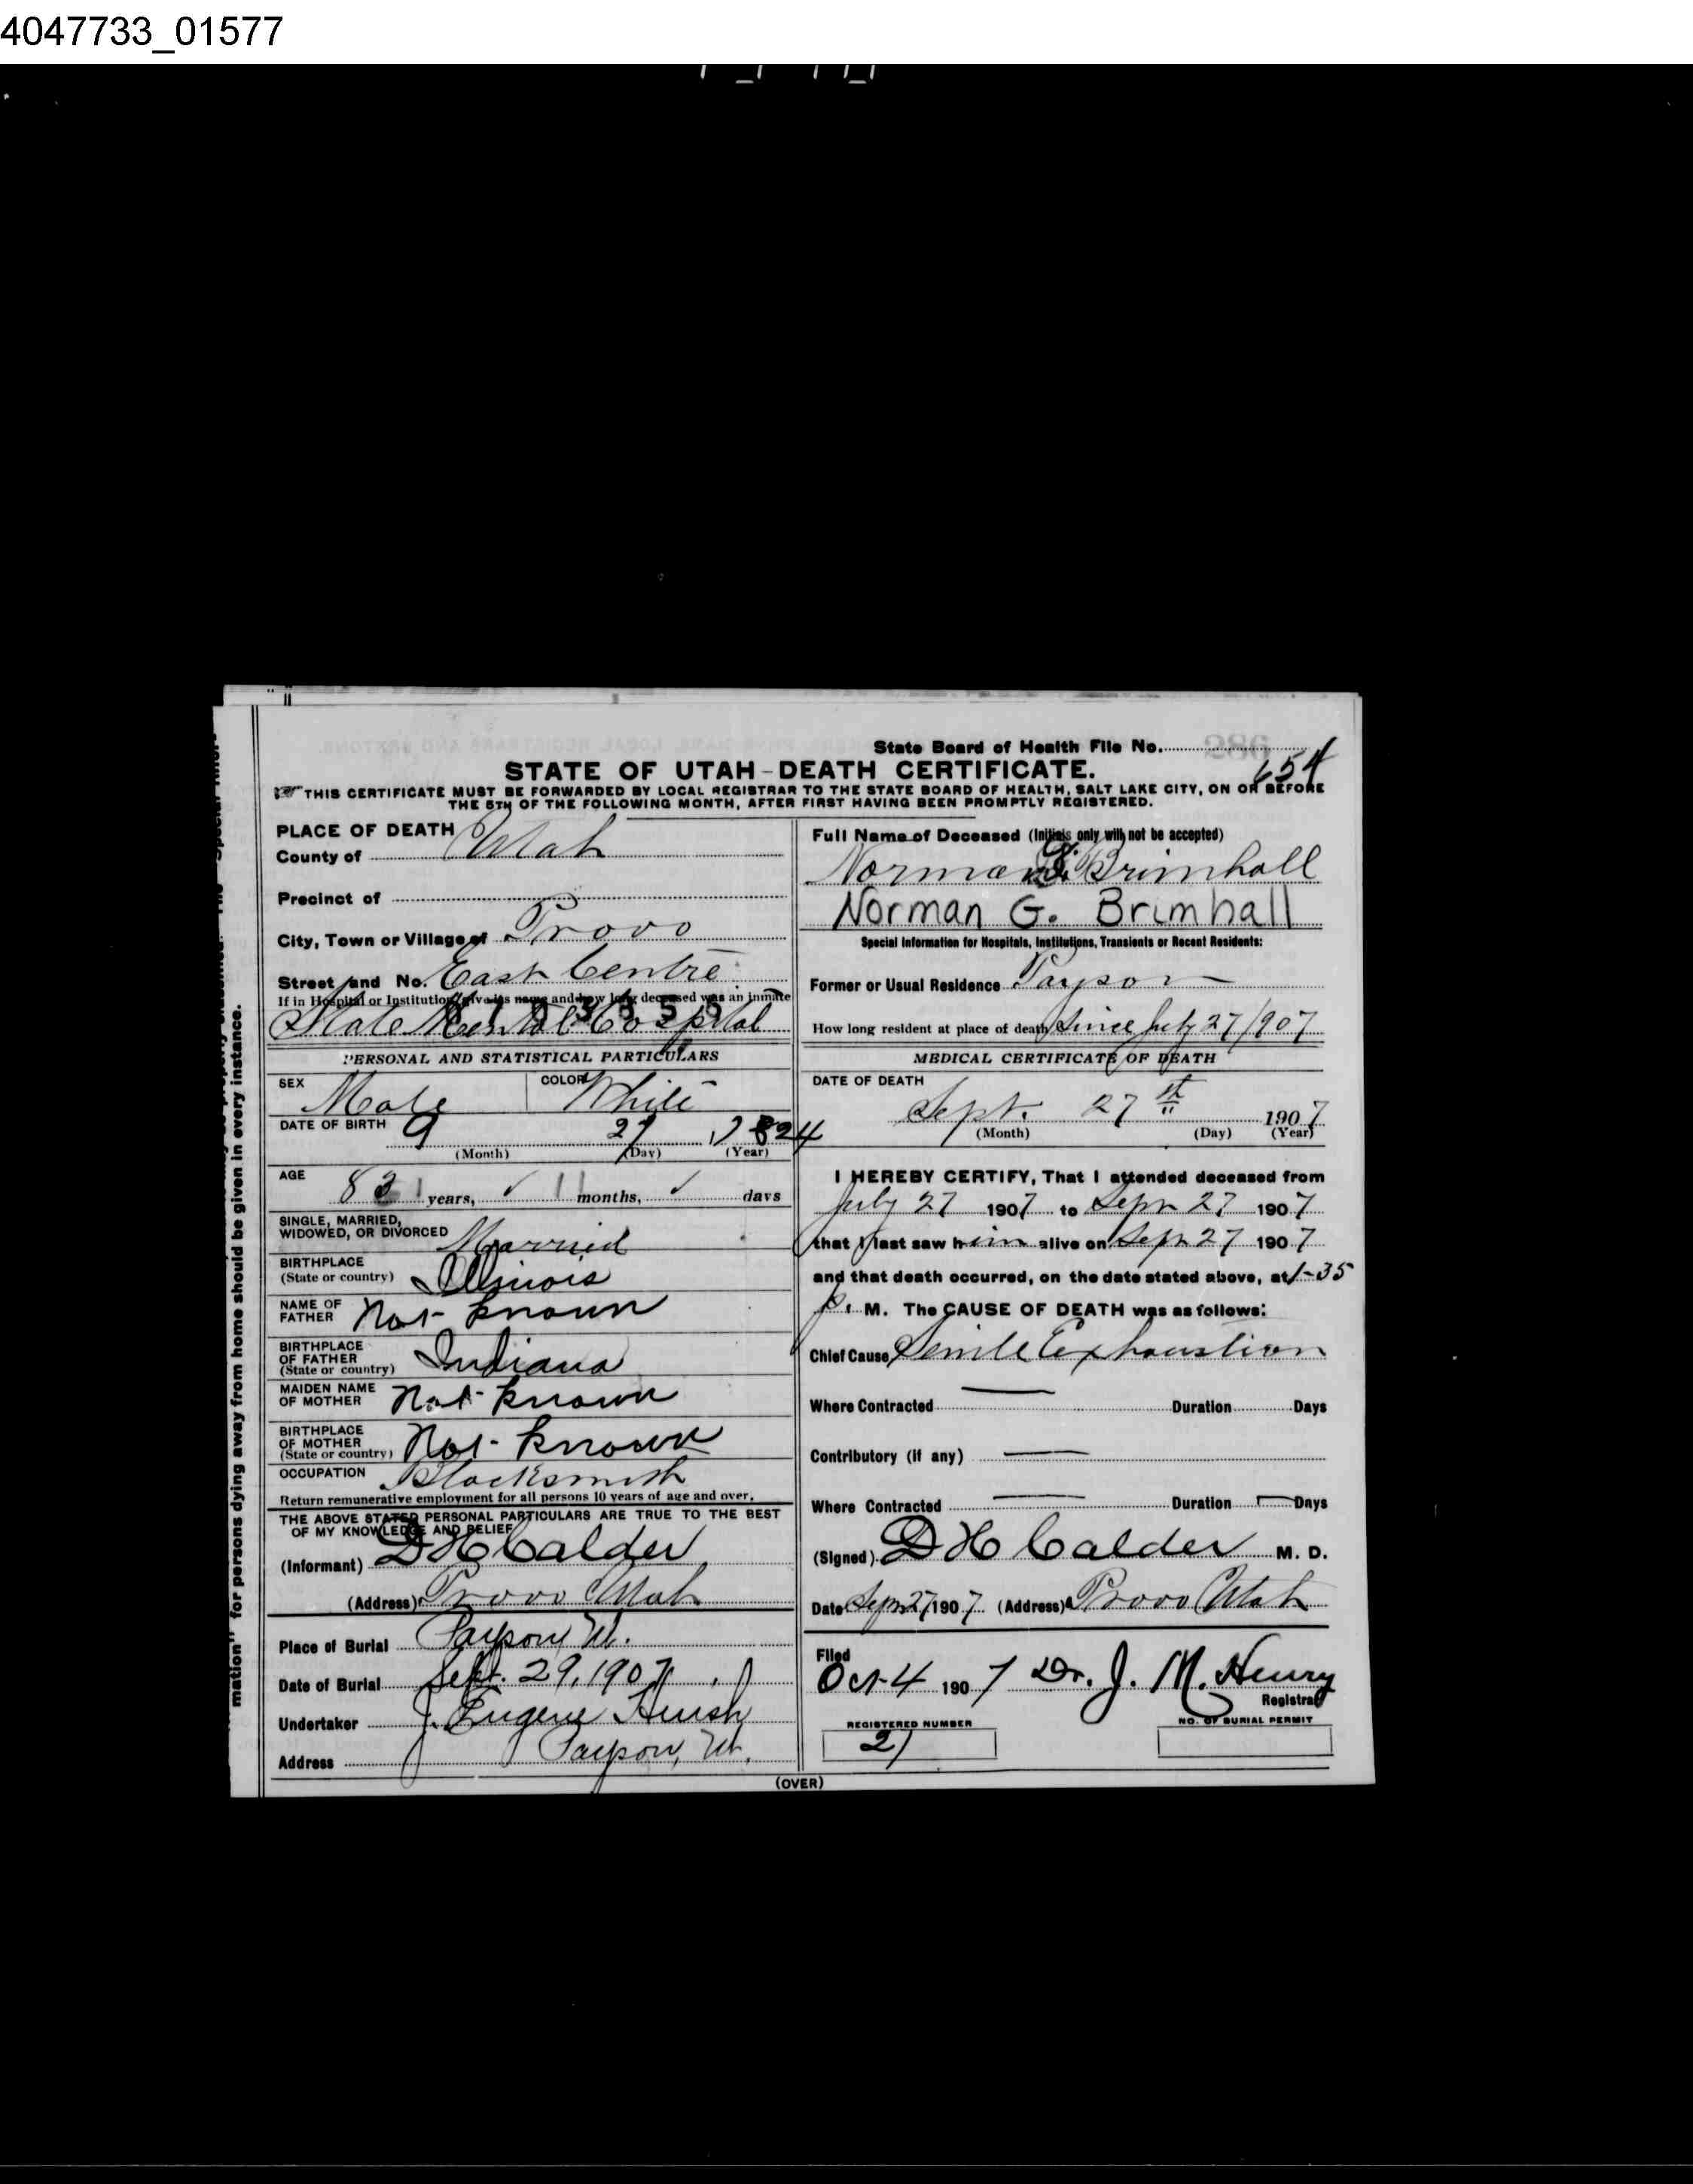 4047733_01577
State Board of Health File No.
654
STATE OF UTAH-DEATH CERTIFICATE.
THIS CERTIFICATE MUST BE FORWARDED BY LOCAL REGISTRAR TO THE STATE BOARD OF HEALTH, SALT LAKE CITY, ON OR BEFORE
THE 5TH OF THE FOLLOWING MONTH, AFTER FIRST HAVING BEEN PROMPTLY REGISTERED.
PLACE OF DEATH
County of Utah
Precinct of
City, Town or Village of Provo
Street and No. East Centre
If in Hospital or Institution, give its name and how long deceased was an inmate
State Mental Hospital
PERSONAL AND STATISTICAL PARTICULARS
SEX Male COLOR White
DATE OF BIRTH 9 27 1824
(Month) (Day) (Year)
AGE 83 years, months, days
SINGLE, MARRIED,
WIDOWED, OR DIVORCED Married
BIRTHPLACE
(State or country) Illinois
NAME OF
FATHER Not known
BIRTHPLACE
OF FATHER
(State or country) Indiana
MAIDEN NAME
OF MOTHER Not known
BIRTHPLACE
OF MOTHER
(State or country) Not known
OCCUPATION Blacksmith
Return remunerative employment for all persons 10 years of age and over.
THE ABOVE STATED PERSONAL PARTICULARS ARE TRUE TO THE BEST
OF MY KNOWLEDGE AND BELIEF
(Informant) D H Calder
(Address) Provo Utah
Place of Burial Payson Ut.
Date of Burial Sept. 29, 1907
Undertaker J. Eugene
Address Payson, Ut.
Full Name of Deceased (Initials only will not be accepted)
Norman G. Brimhall
Norman G. Brimhall
Special Information for Hospitals, Institutions, Transients or Recent Residents:
Former or Usual Residence Payson
How long resident at place of death Since July 27/907
MEDICAL CERTIFICATE OF DEATH
DATE OF DEATH
Sept. 27th 1907
(Month) (Day) (Year)
I HEREBY CERTIFY, That I attended deceased from
July 27 1907 to Sept 27 1907
that I last saw him alive on Sept 27 1907
and that death occurred, on the date stated above, at 1-35
P. M. The CAUSE OF DEATH was as follows:
Chief Cause Senile Exhaustion
Where Contracted Duration Days
Contributory (if any)
Where Contracted Duration Days
(Signed) D H Calder M. D.
Date Sept 27 1907 (Address) Provo Utah
Filed
Oct 4 1907 Dr. J. M. Henry
Registrar
REGISTERED NUMBER
27
NO. OF BURIAL PERMIT
(OVER)
mation" for persons dying away from home should be given in every instance.